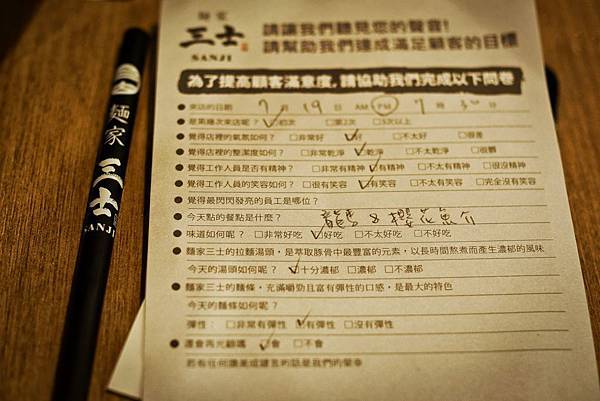 麵家
三士
SANJI
請讓我們聽見您的聲音!
請幫助我們達成滿足顧客的目標
為了提高顧客滿意度,請協助我們完成以下問卷
●來店的日期 7月19日 AM PM 7時30分
●是第幾次來店呢? ☑初次 □第2次 □3次以上
●覺得店裡的氣氛如何? □非常好 ☑好 □不太好 □很差
●覺得店裡的整潔度如何? □非常乾淨 ☑乾淨 □不太乾淨 □很髒
●覺得工作人員是否有精神? □非常有精神 ☑有精神 □不太有精神 □很沒精神
●覺得工作人員的笑容如何? □很有笑容 ☑有笑容 □不太有笑容 □完全沒有笑容
●覺得最閃閃發亮的員工是哪位?
●今天點的餐點是什麼? 龍馬 & 櫻花魚介
●味道如何呢? □非常好吃 ☑好吃 □不太好吃 □不好吃
●麵家三士的拉麵湯頭,是萃取豚骨中最豐富的元素,以長時間熬煮而產生濃郁的風味
今天的湯頭如何呢? ☑十分濃郁 □濃郁 □不濃郁
●麵家三士的麵條,充滿嚼勁且富有彈性的口感,是最大的特色
今天的麵條如何呢?
彈性: □非常有彈性 ☑有彈性 □沒有彈性
●還會再光顧嗎 ☑會 □不會
若有任何建議或讚美的話是我們的榮幸
麵家
三士
SANJI